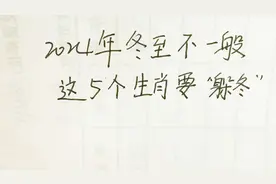 2024年冬至不一般
这5个生肖要“躲冬”